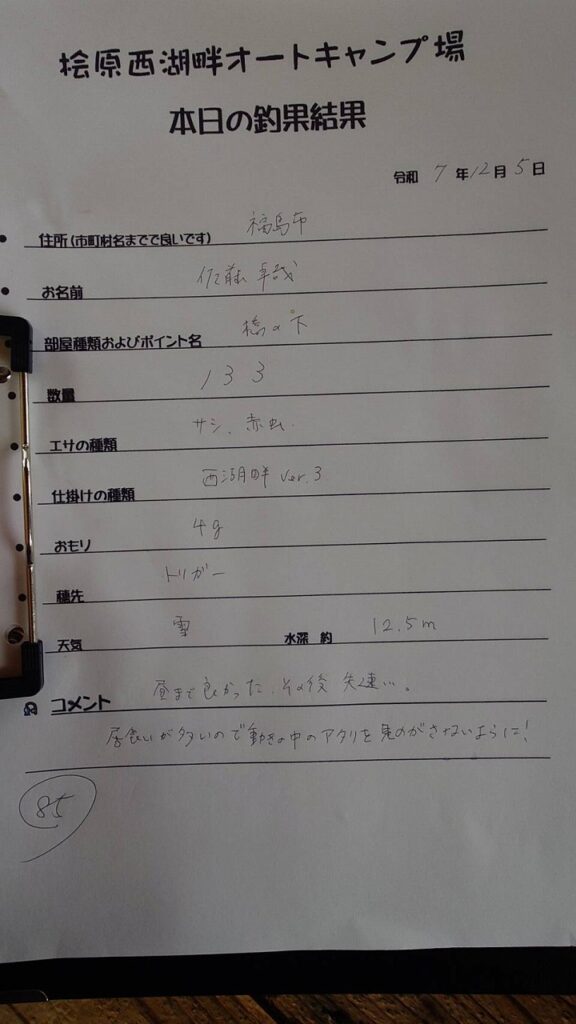 桧原西湖畔オートキャンプ場
本日の釣果結果
令和 7 年 12 月 5 日
住所(市町村名までで良いです) 福島市
お名前 佐藤卓哉
部屋種類およびポイント名 橋の下
数量 133
エサの種類 サシ、赤虫
仕掛けの種類 西湖畔 ver.3
おもり 4g
穂先 トリガー
天気 雪 水深 約 12.5m
コメント 昼まで良かった、その後 失速い。
居食いが多いので動きの中のアタリを見のがさないように!
85